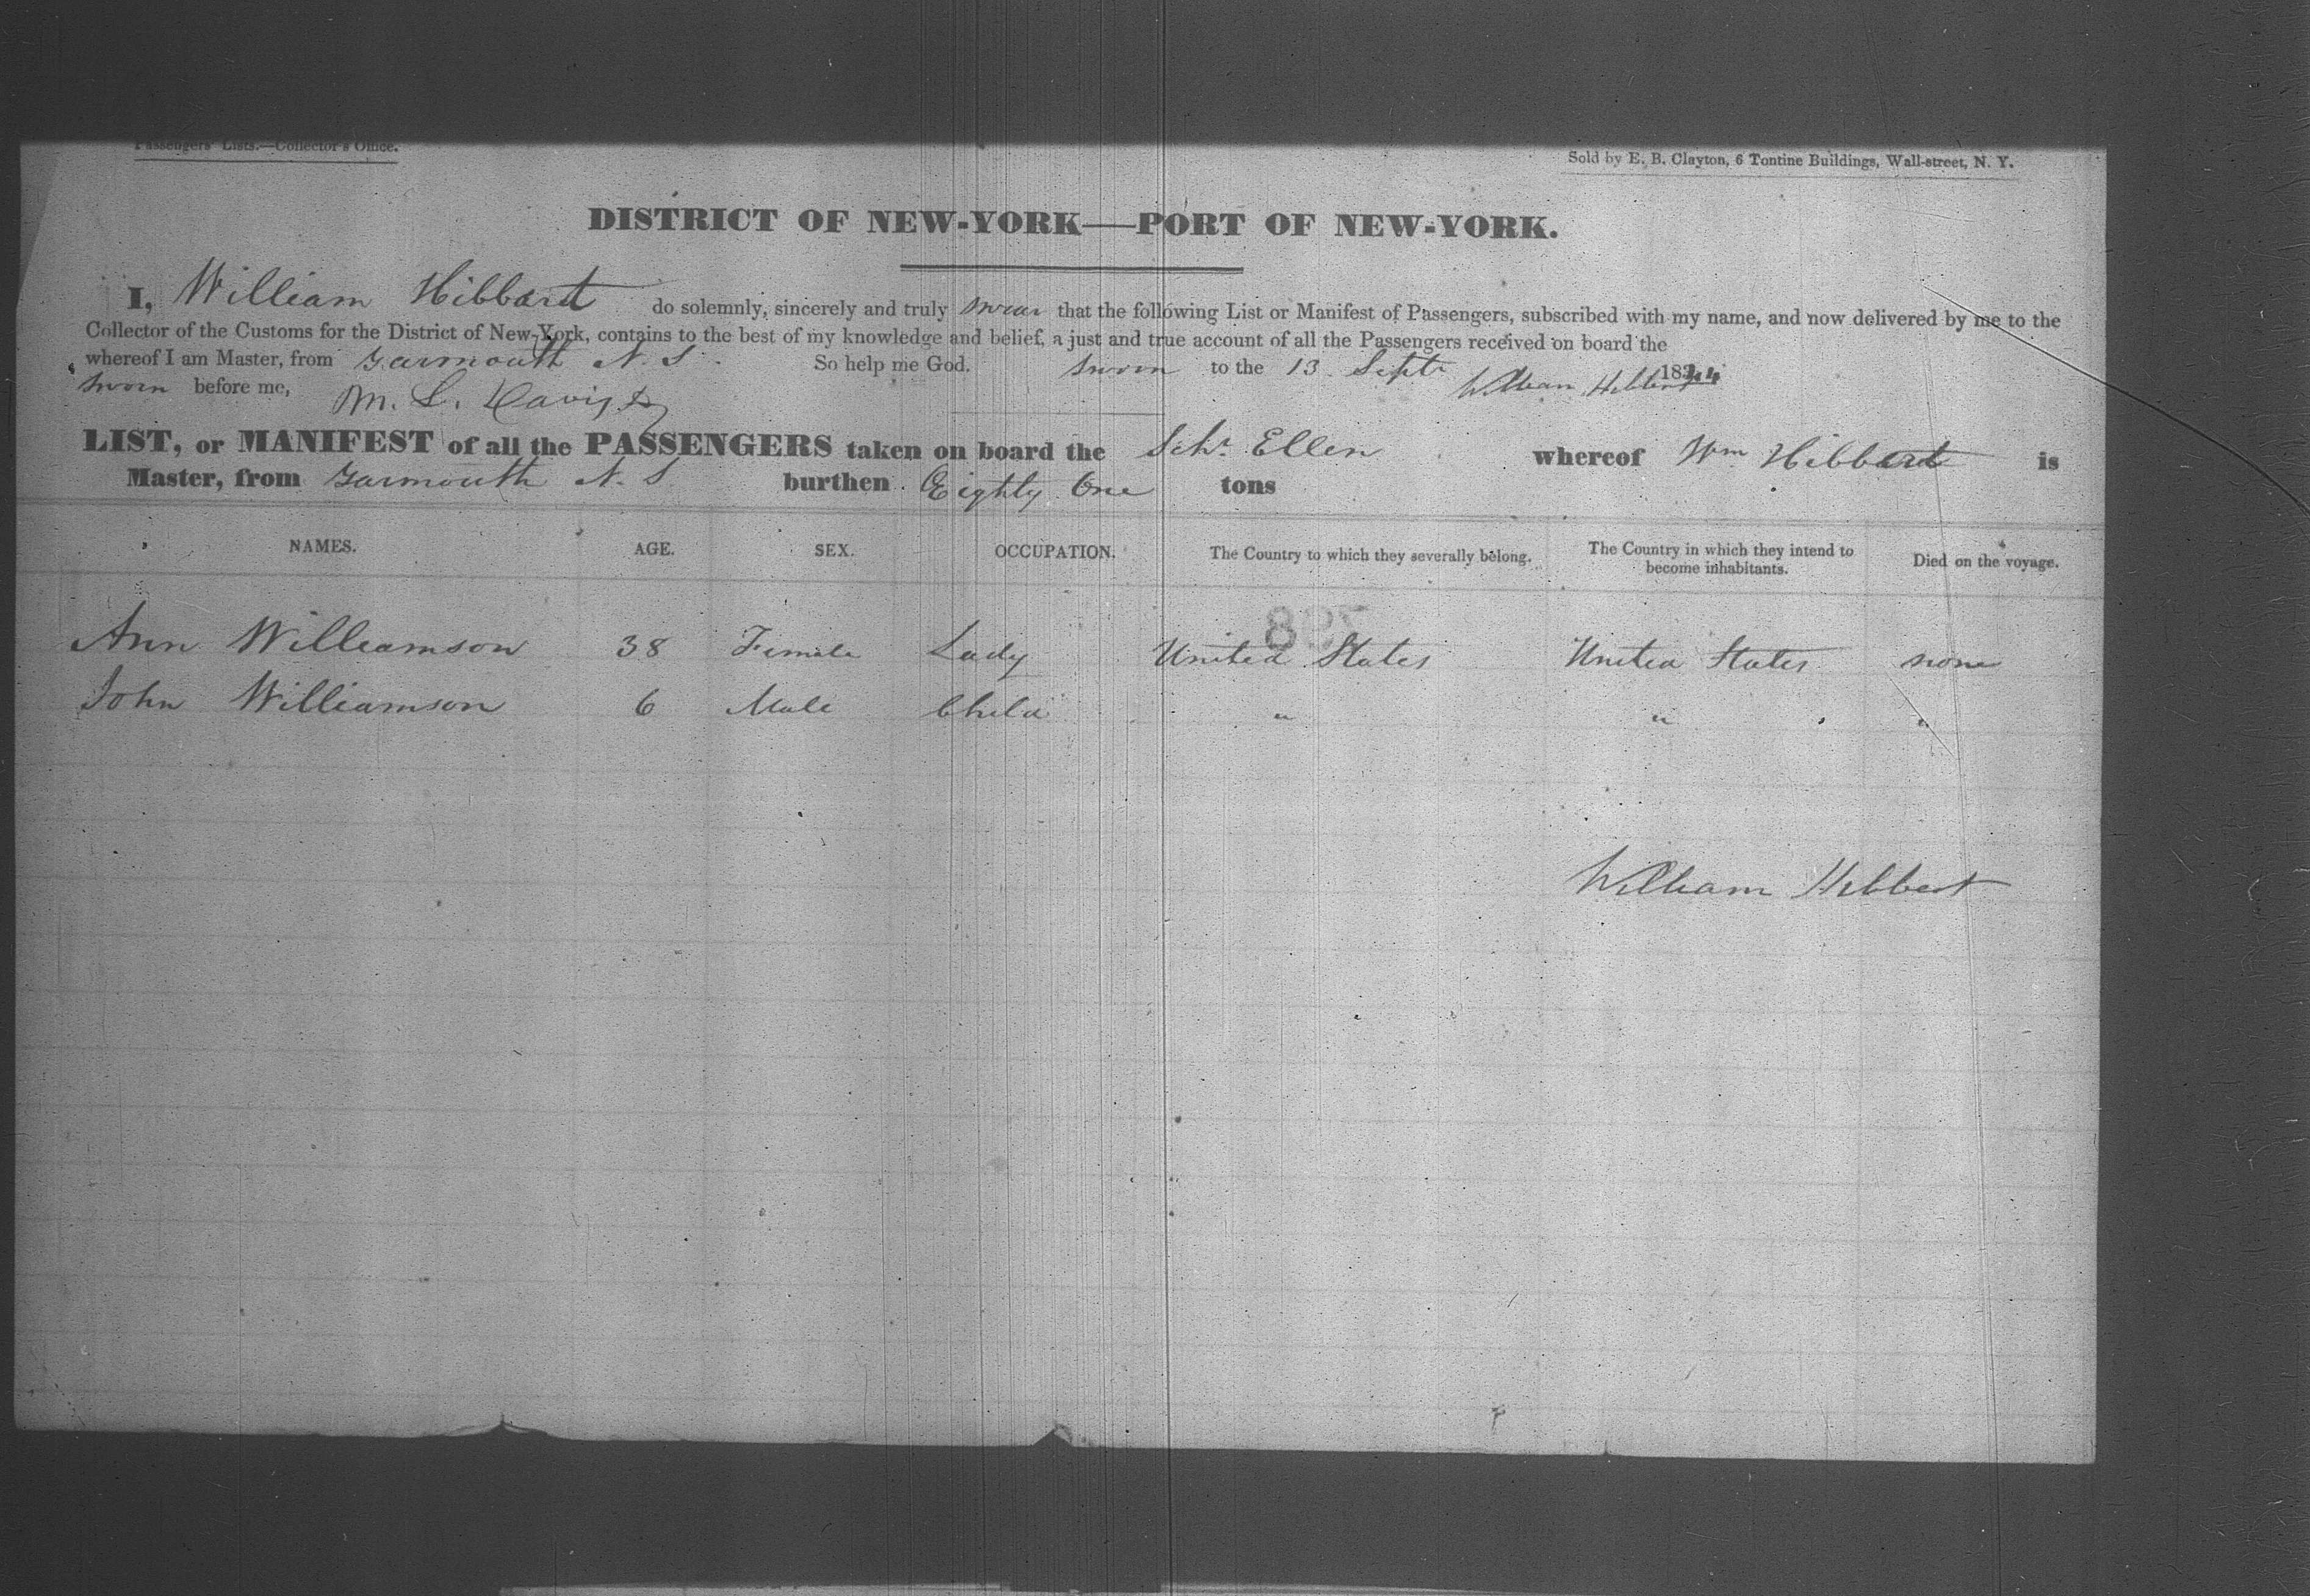 Passengers' Lists.—Collector's Office.
Sold by E. B. Clayton, 6 Tontine Buildings, Wall-street, N. Y.
DISTRICT OF NEW-YORK—PORT OF NEW-YORK.
I, William Hibbard do solemnly, sincerely and truly swear that the following List or Manifest of Passengers, subscribed with my name, and now delivered by me to the
Collector of the Customs for the District of New-York, contains to the best of my knowledge and belief, a just and true account of all the Passengers received on board the
whereof I am Master, from Yarmouth N. S. So help me God. Sworn to the 13 Septr 1844
Sworn before me, M. L. Davis William Hibbert
LIST, or MANIFEST of all the PASSENGERS taken on board the Schr Ellen whereof Wm Hibbard is
Master, from Yarmouth N. S burthen Eighty One tons
NAMES. AGE. SEX. OCCUPATION. The Country to which they severally belong. The Country in which they intend to become inhabitants. Died on the voyage.
Ann Williamson 38 Female Lady United States United States none
John Williamson 6 Male Child " " "
William Hibbert